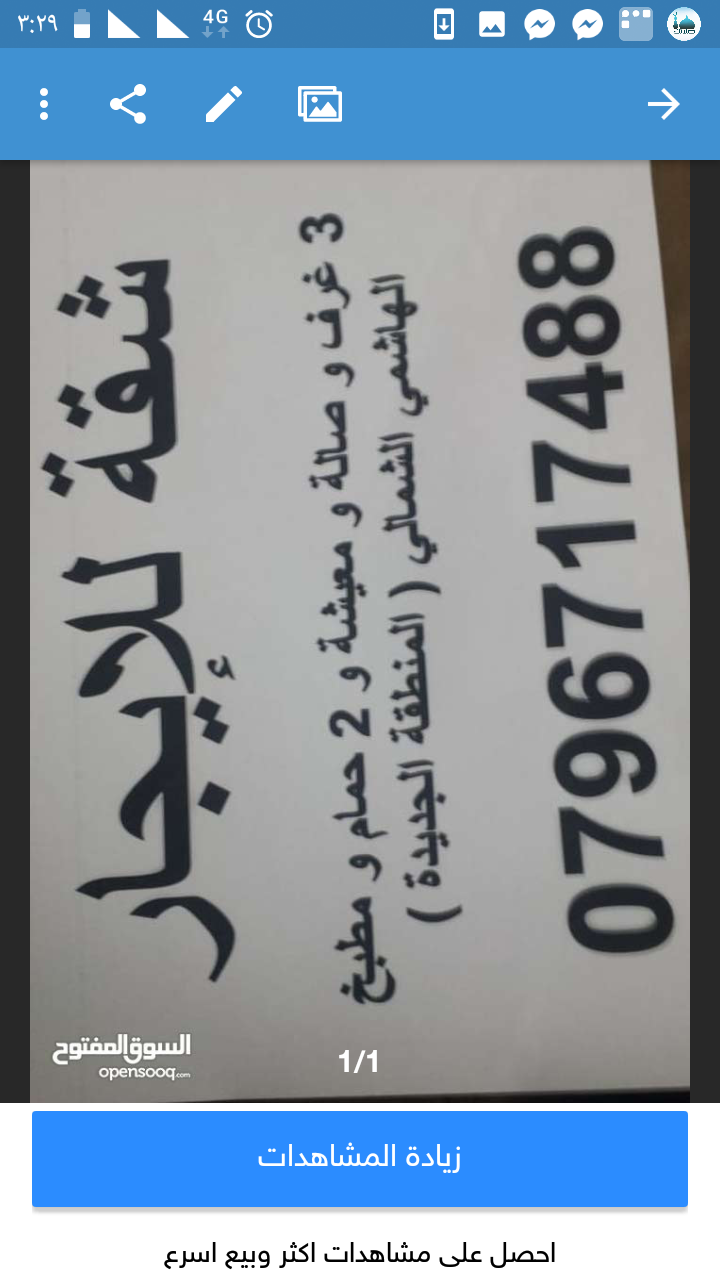 ٣:٢٩
4G
شقة للإيجار
3 غرف و صالة و معيشة و 2 حمام و مطبخ
الهاشمي الشمالي ( المنطقة الجديدة )
0796717488
السوق المفتوح
opensooq.com
1/1
زيادة المشاهدات
احصل على مشاهدات اكثر وبيع اسرع